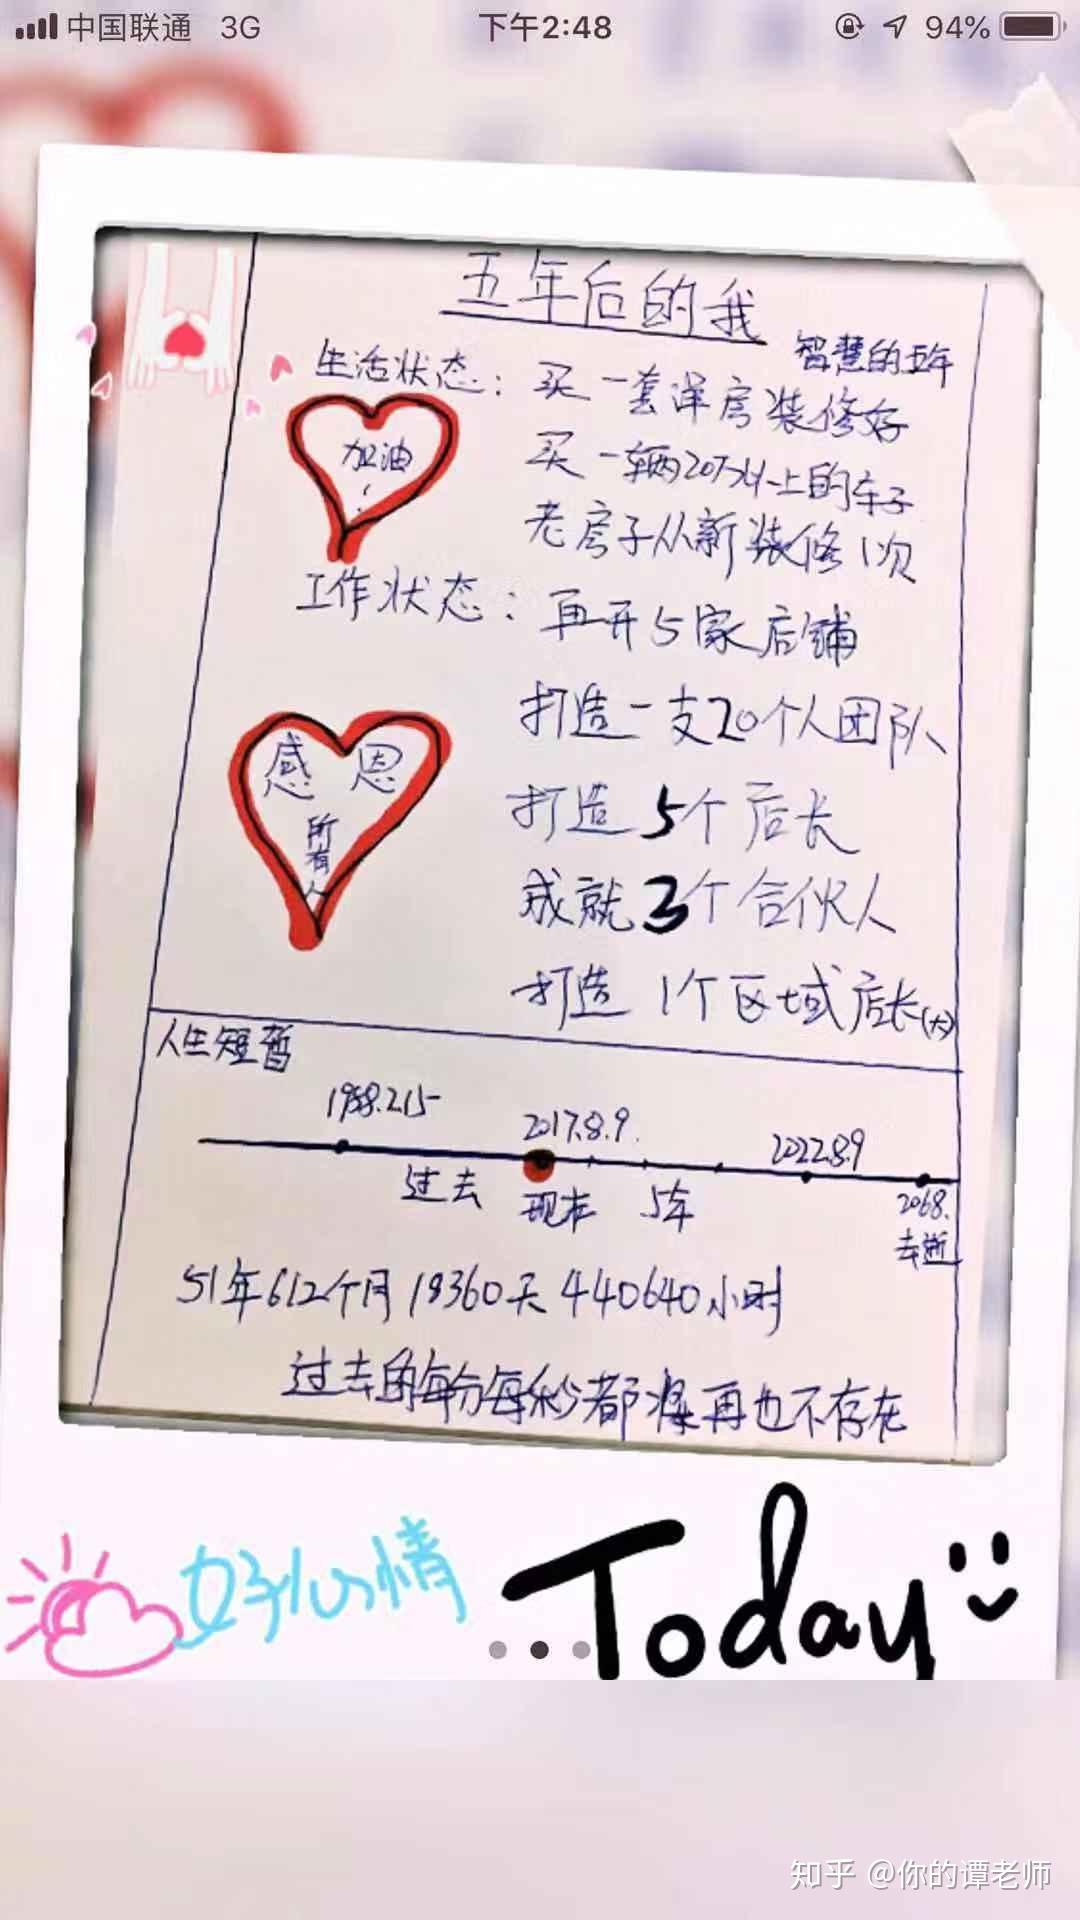 中国联通 3G 下午2:48 94%
五年后的我
智慧的五年
生活状态：买一套洋房装修好
买一辆20万以上的车子
老房子从新装修1次
加油！
工作状态：再开5家店铺
打造一支20个人团队
打造5个店长
成就3个合伙人
打造1个区域店长(大)
感恩
所有人
人生短暂
2017.8.9.
2022.8.9
过去
现在
5年
2068.
去逝
51年612个月18360天440640小时
过去的每分每秒都将再也不存在
好心情
Today
知乎 @你的谭老师